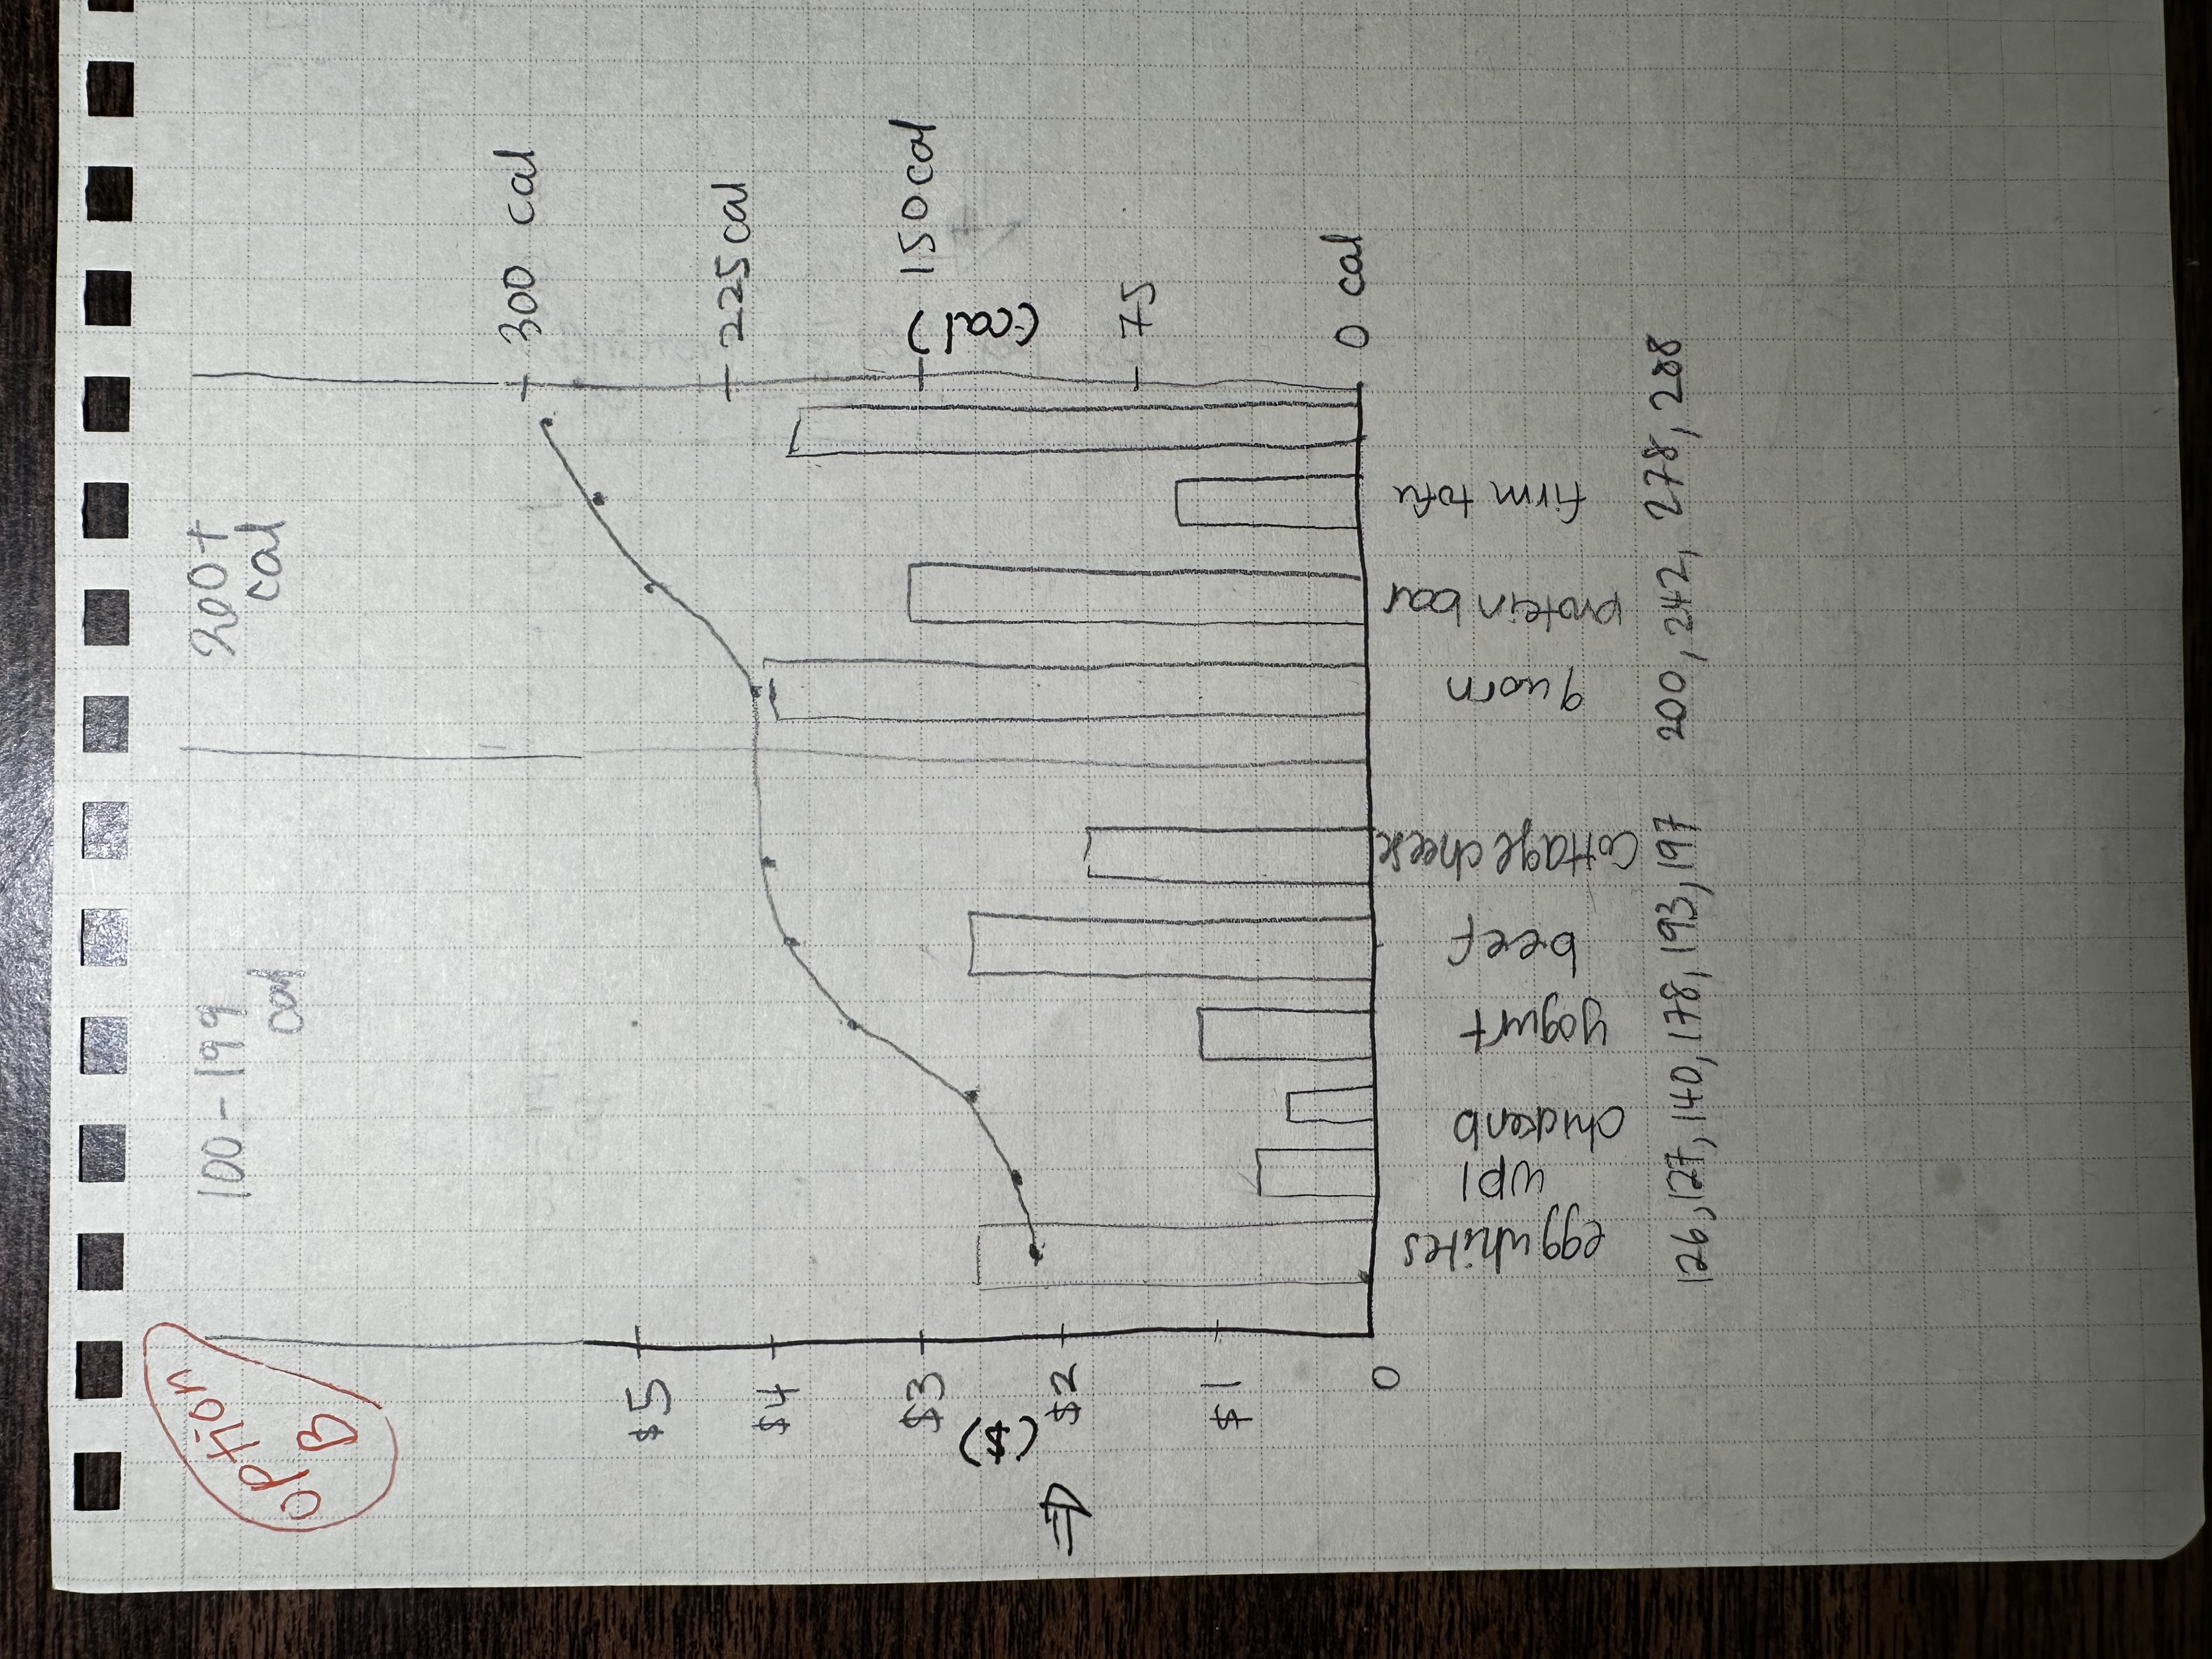 option
B
100-199
cal
200+
cal
300 cal
$5
225 cal
$4
$3
150 cal
($)
(cal)
⇒ $2
75
$1
0 cal
0
egg whites
WPI
chicken b
yogurt
beef
cottage cheese
quorn
protein bar
firm tofu
126, 127, 140, 178, 193, 197 200, 242, 278, 288